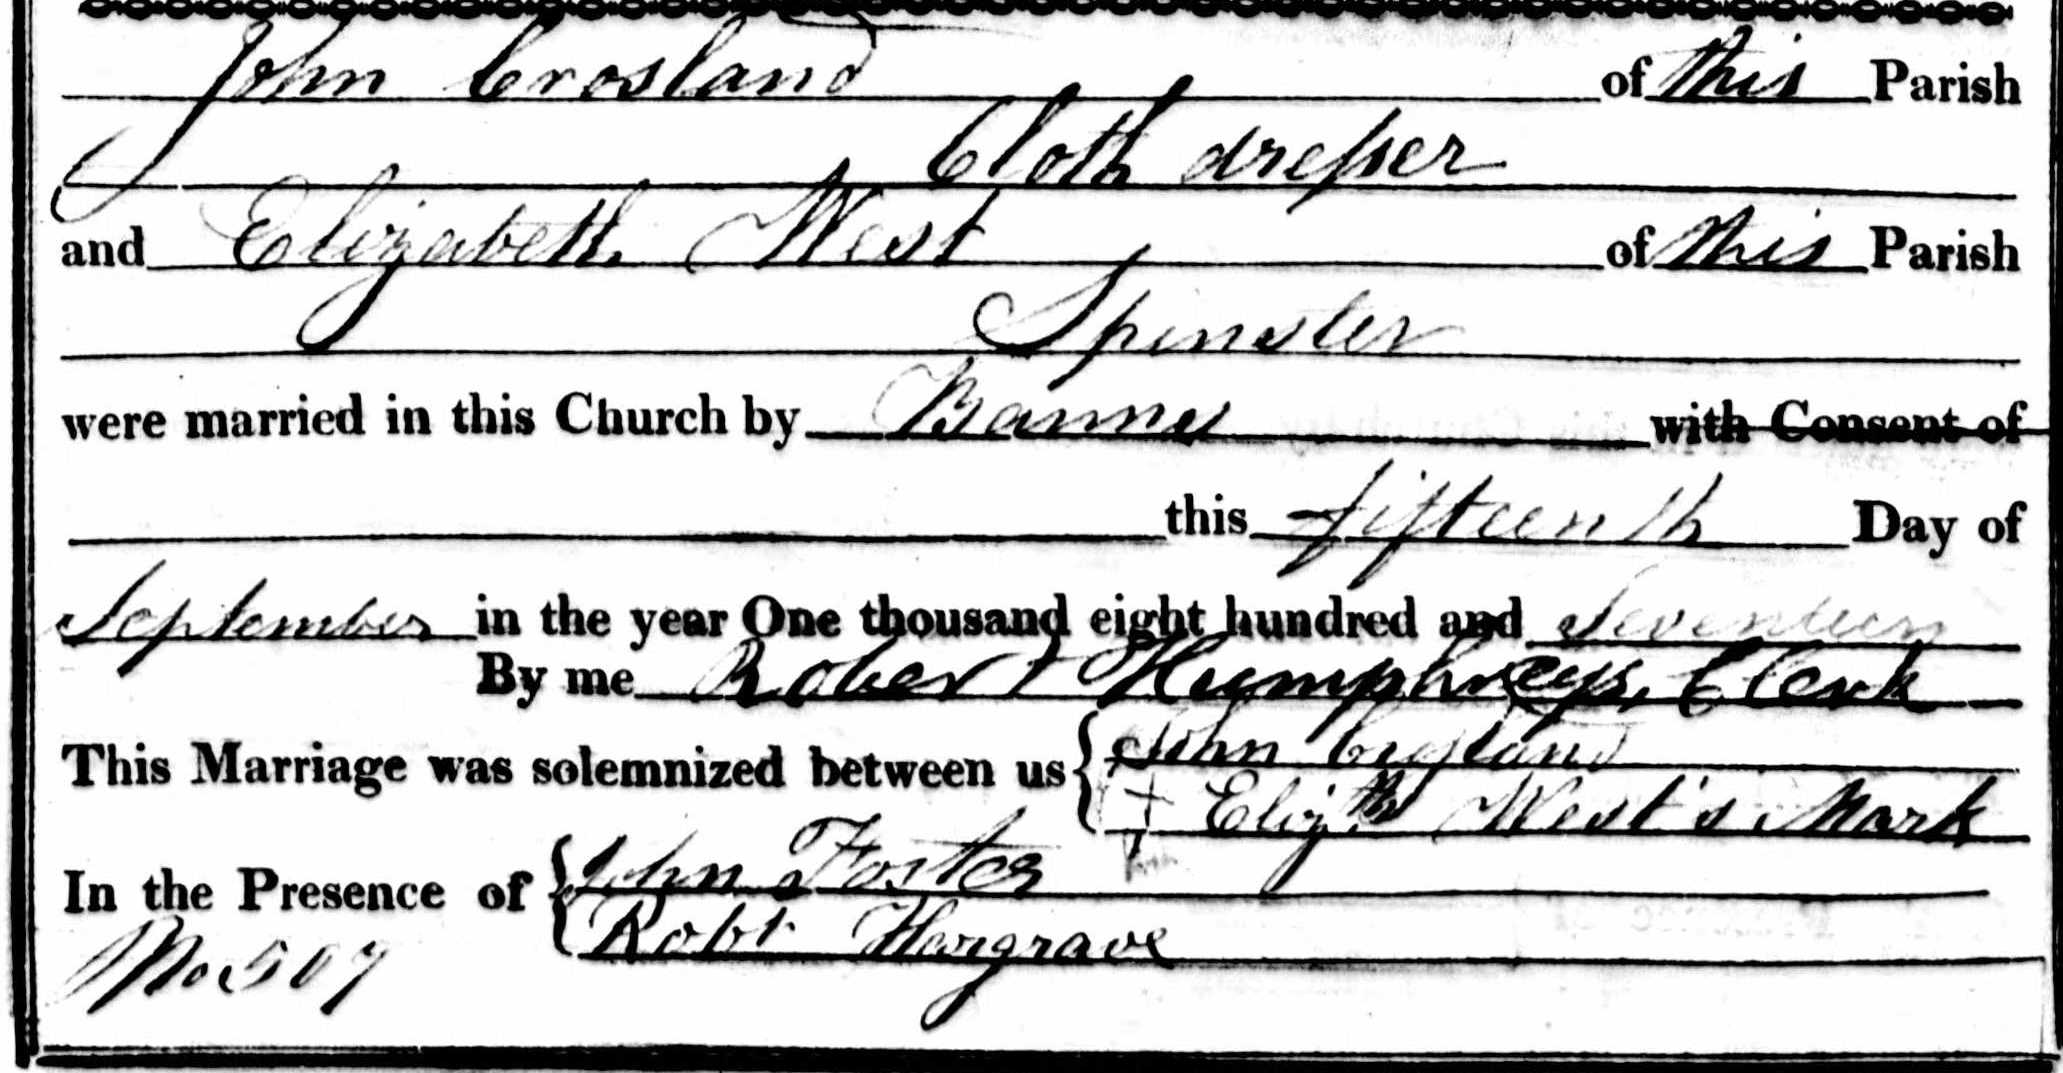 John Crosland of this Parish
Cloth dreſser
and Elizabeth West of this Parish
Spinster
were married in this Church by Banns with Consent of
this fifteenth Day of
September in the year One thousand eight hundred and Seventeen
By me Robert Humphreys, Clerk
This Marriage was solemnized between us John Crosland
+ Elizth West's Mark
In the Presence of John Foster
Robt Hargrave
No 507